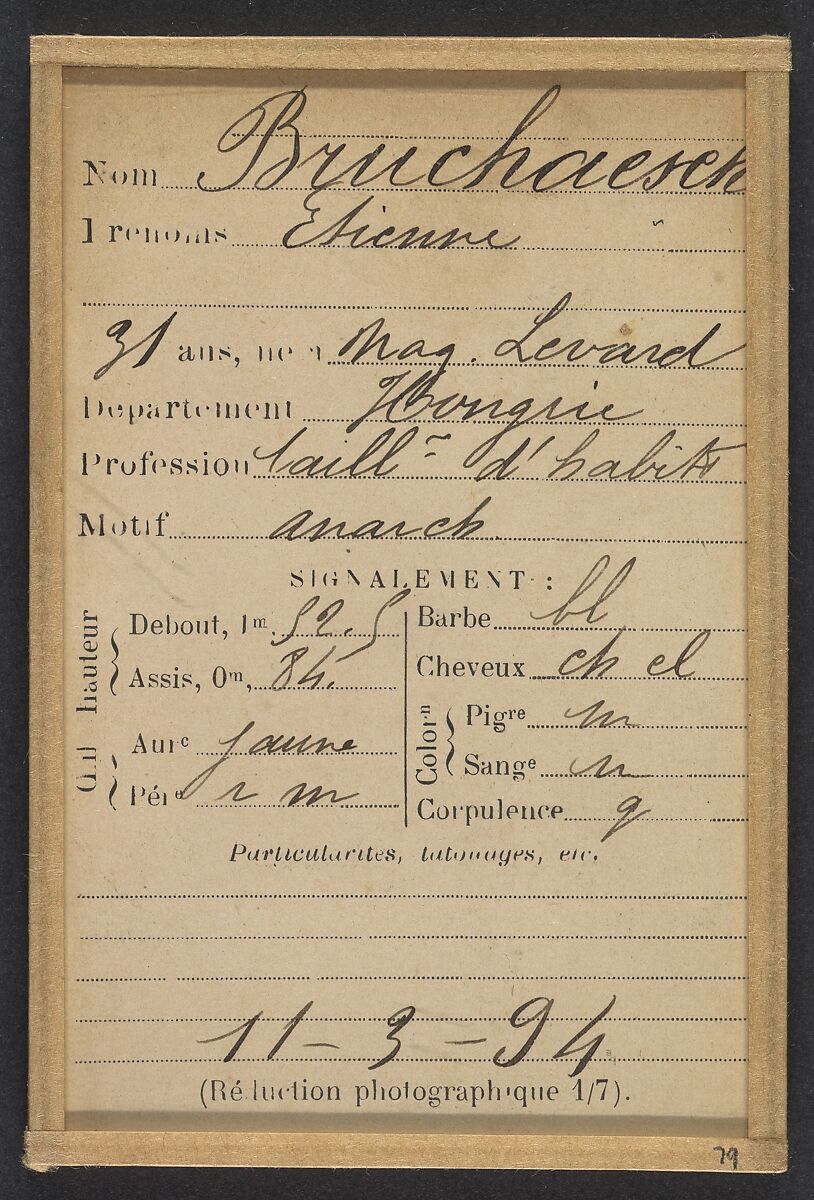 Nom Bruchaesch
Prénoms Etienne "
31 ans, né à Mag. Levard
Département Hongrie
Profession taill r d'habits
Motif anarch.
SIGNALEMENT :
hauteur
Debout, 1m, 52.5
Assis, 0m, 84.
Œil
Aure jaune
Pére r m
Barbe bl
Cheveux ch cl
Color n
Pigre m
Sange m
Corpulence g
Particularités, tatouages, etc.
11-3-94
(Réduction photographique 1/7).
79